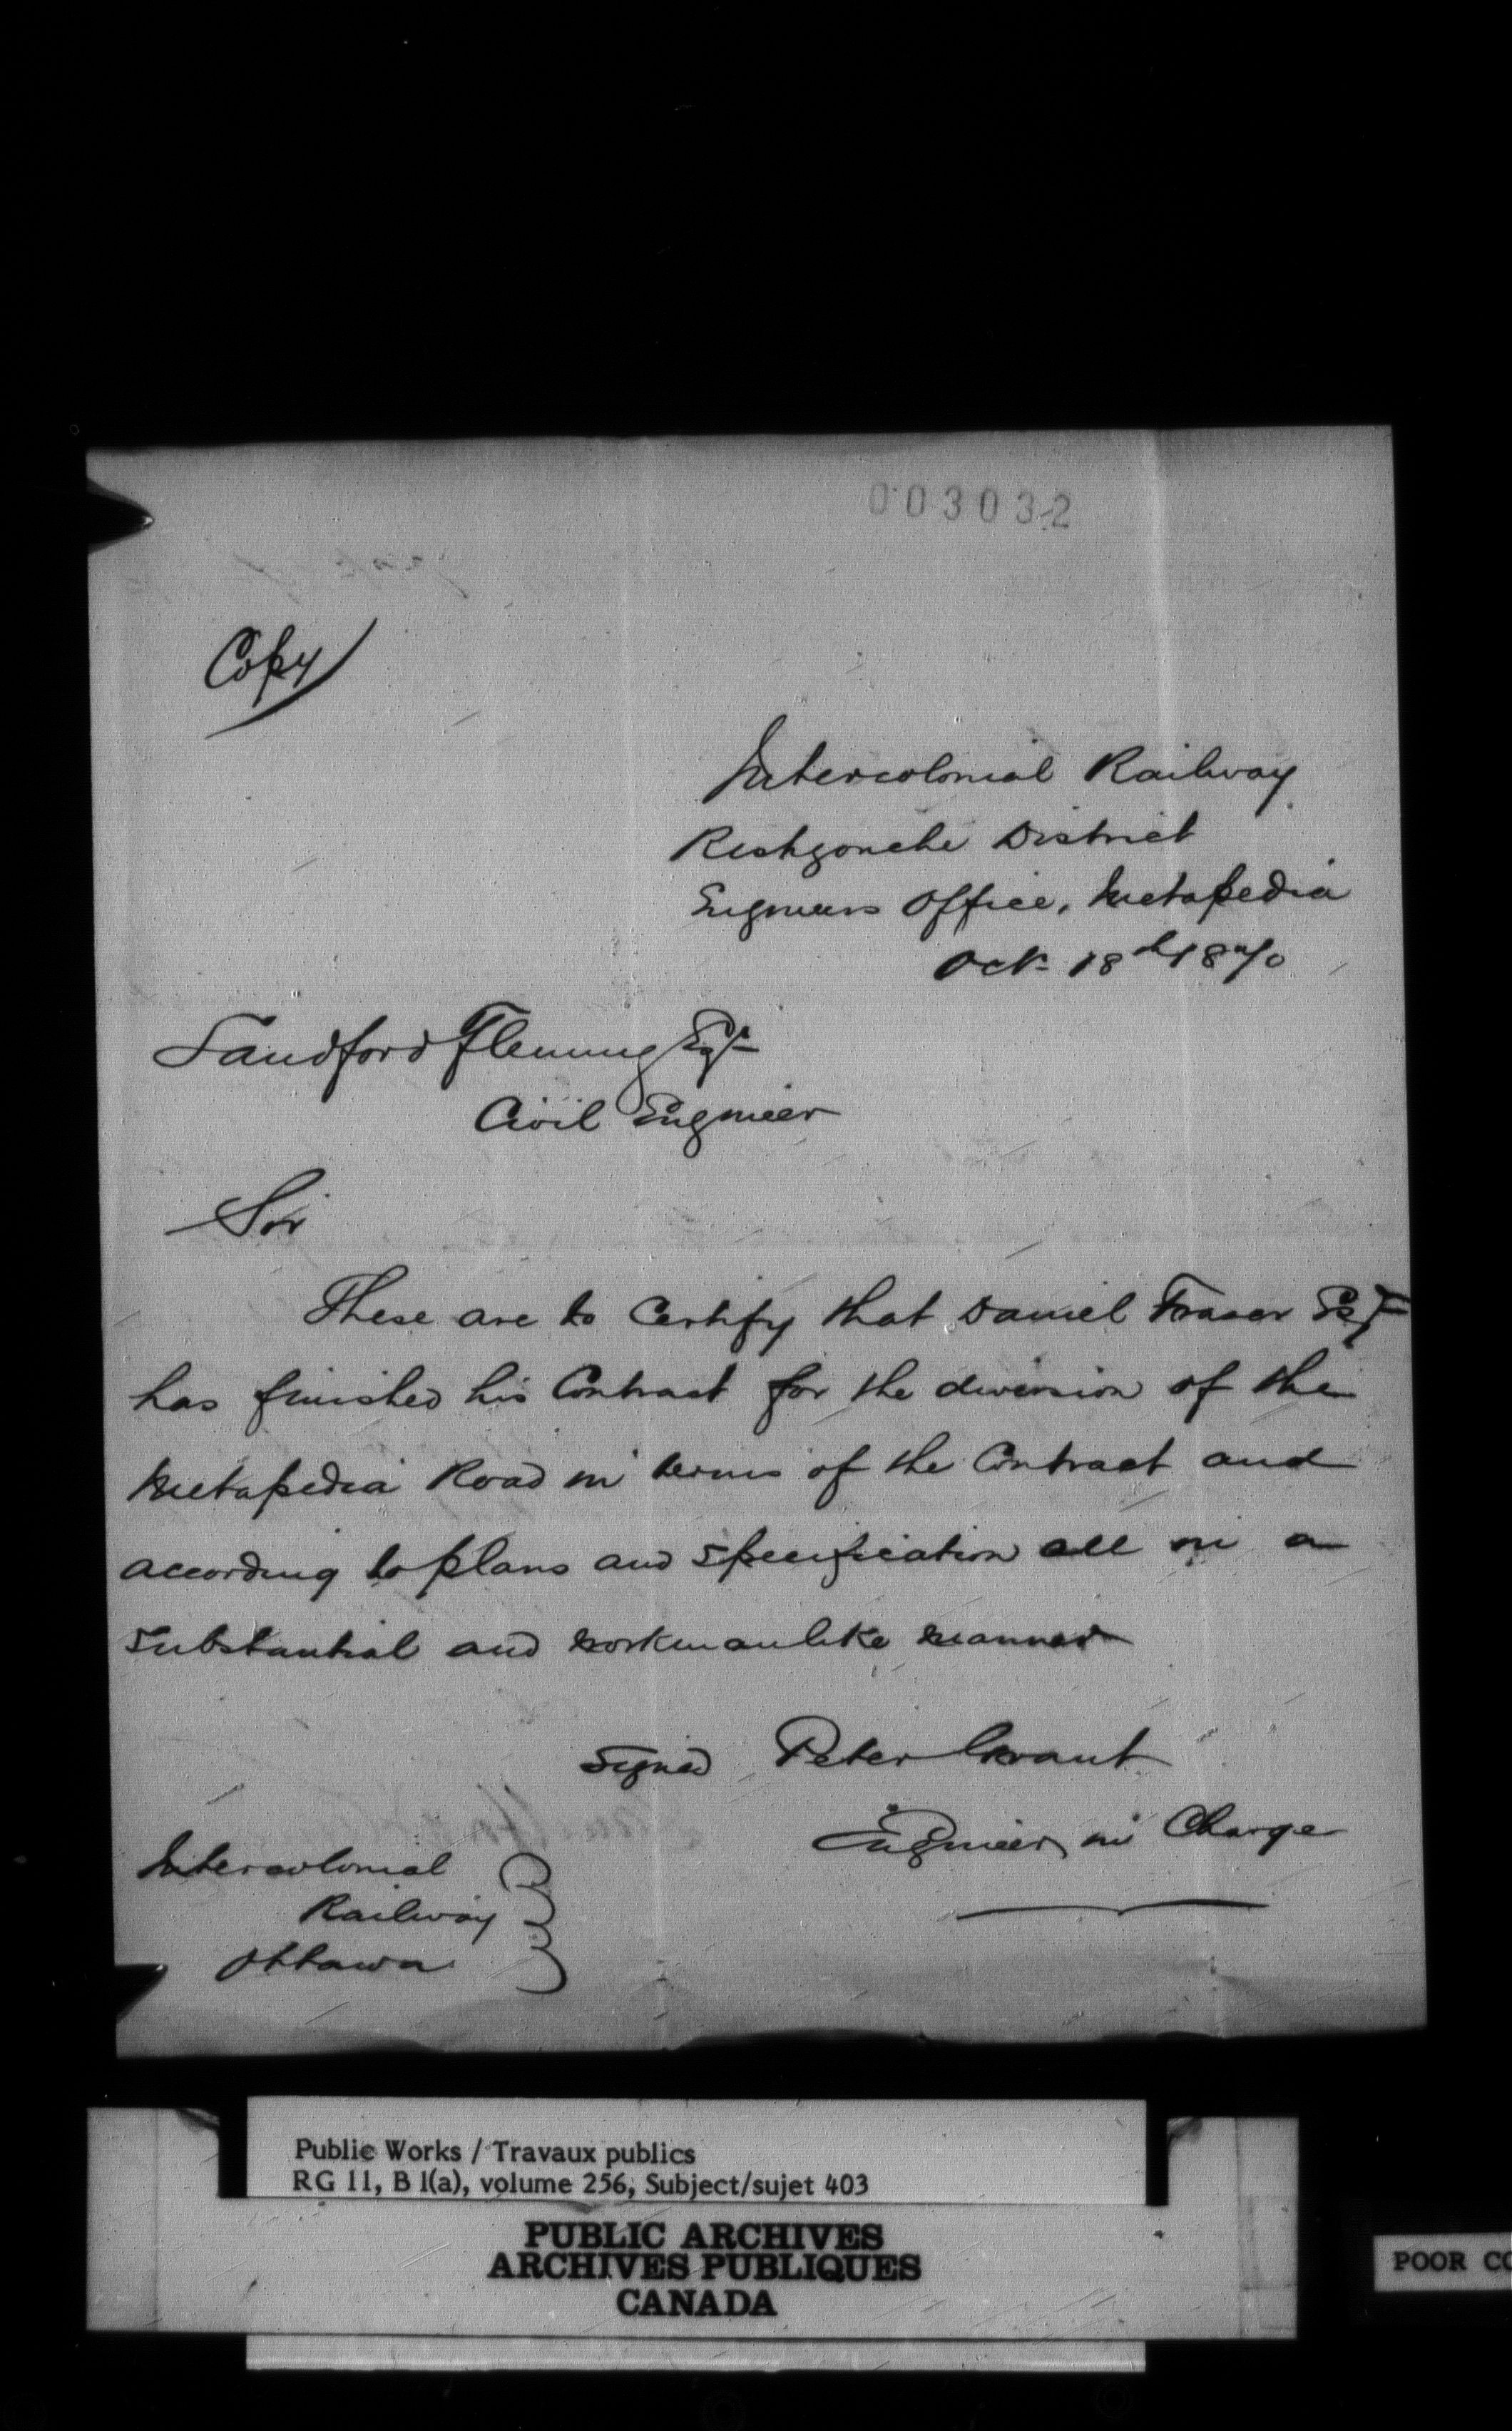 003032
Copy
Intercolonial Railway
Restigouche District
Engineers Office, Metapedia
Oct 18th 1870
Sandford Fleming Esqr
Civil Engineer
Sir
These are to Certify that Daniel Fraser Esqr
has finished his Contract for the diversion of the
Metapedia Road in terms of the Contract and
according to plans and Specification all in a
Substantial and workmanlike manner
Signed Peter Grant
Engineer in Charge
Intercolonial
Railway
Ottawa
Public Works / Travaux publics
RG 11, B 1(a), volume 256, Subject/sujet 403
PUBLIC ARCHIVES
ARCHIVES PUBLIQUES
CANADA
POOR CO